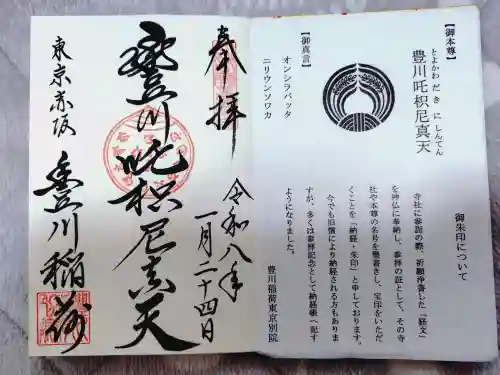 奉拝
令和八年
一月二十四日
豊川吒枳尼真天
東京赤坂
豊川稲荷
御朱印について
寺社に参詣の際、祈願浄書した「経文」
を神仏に奉納し、参拝の証として、その寺
社や本尊の名号を墨書きし、宝印をいただ
くことを「納経・朱印」と申しております。
今でも旧慣により納経される方もありま
すが、多くは参拝記念として納経帳へ記す
ようになりました。
豊川稲荷東京別院
【御本尊】
とよかわ だ き に しんてん
豊川吒枳尼真天
【御真言】
オンシラバッタ
ニリウンソワカ